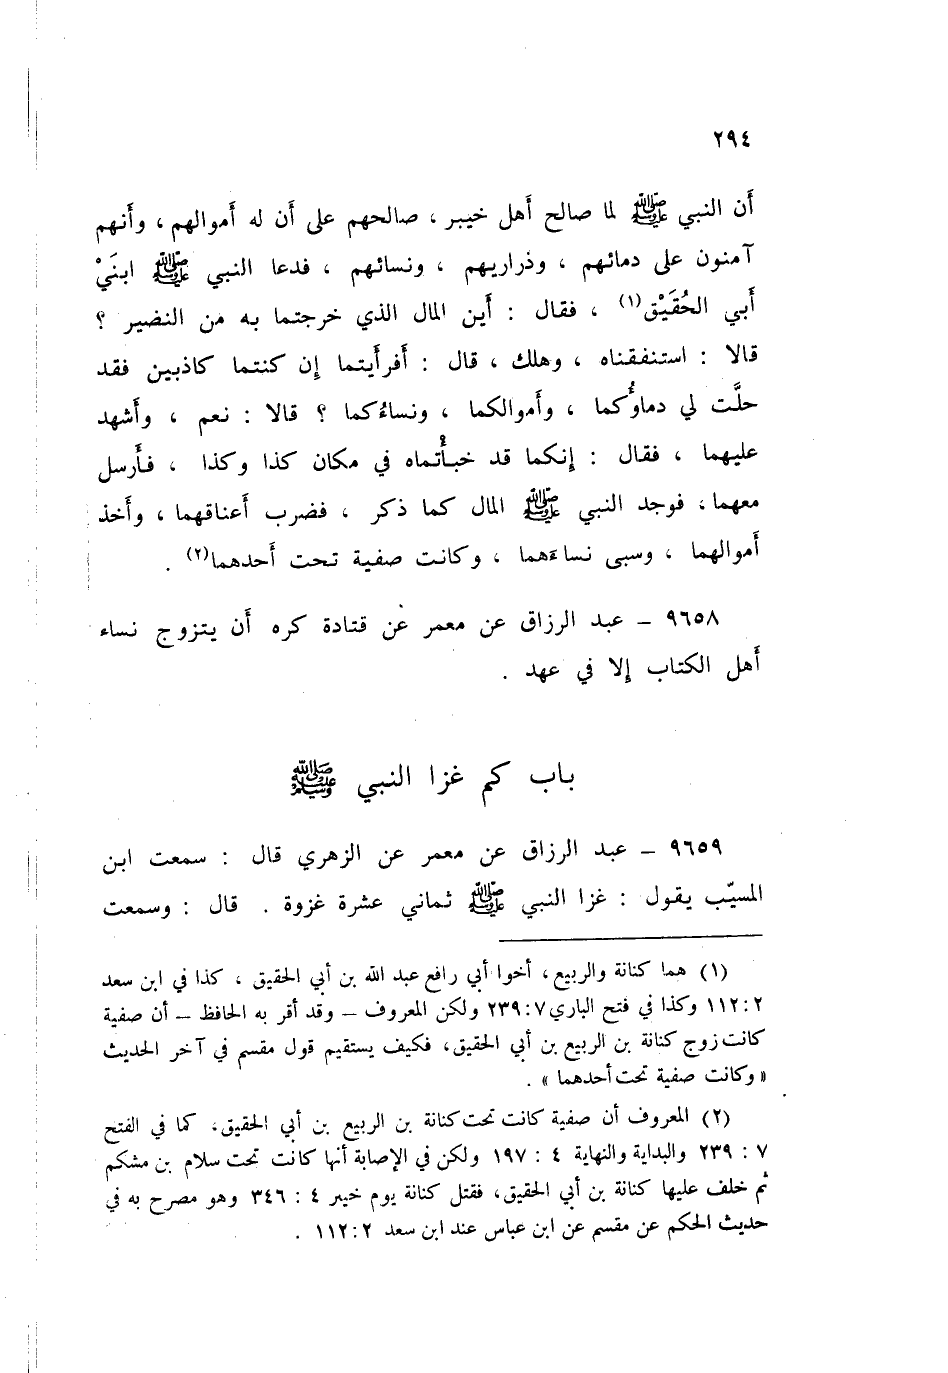 ٢٩٤
أَن النبي ﷺ لما صالح أَهل خيبر ، صالحهم على أَن له أَموالهم ، وأَنهم
آمنون على دمائهم ، وذراريهم ، ونسائهم ، فدعا النبي ﷺ ابنَيْ
أَبي الحُقَيْق(١) ، فقال : أَين المال الذي خرجتما به من النضير ؟
قالا : استنفقناه ، وهلك ، قال : أَفرأَيتما إِن كنتما كاذبين فقد
حلَّت لي دماوُكما ، وأَموالكما ، ونساءُكما ؟ قالا : نعم ، وأَشهد
عليهما ، فقال : إِنكما قد خبأْتماه في مكان كذا وكذا ، فأَرسل
معهما ، فوجد النبي ﷺ المال كما ذكر ، فضرب أَعناقهما ، وأَخذ
أَموالهما ، وسبى نساءَهما ، وكانت صفية تحت أَحدهما(٢) .
٩٦٥٨ – عبد الرزاق عن معمر عن قتادة كره أَن يتزوج نساء
أَهل الكتاب إِلا في عهد .
باب كم غزا النبي ﷺ
٩٦٥٩ – عبد الرزاق عن معمر عن الزهري قال : سمعت ابن
المسيّب يقول : غزا النبي ﷺ ثماني عشرة غزوة . قال : وسمعت
(١) هما كنانة والربيع ، أخوا أبي رافع عبد الله بن أبي الحقيق ، كذا في ابن سعد
٢ : ١١٢ وكذا في فتح الباري ٧ : ٢٣٩ ولكن المعروف – وقد أقر به الحافظ – أن صفية
كانت زوج كنانة بن الربيع بن أبي الحقيق ، فكيف يستقيم قول مقسم في آخر الحديث
« وكانت صفية تحت أحدهما » .
(٢) المعروف أن صفية كانت تحت كنانة بن الربيع بن أبي الحقيق ، كما في الفتح
٧ : ٢٣٩ والبداية والنهاية ٤ : ١٩٧ ولكن في الإصابة أنها كانت تحت سلام بن مشكم
ثم خلف عليها كنانة بن أبي الحقيق ، فقتل كنانة يوم خيبر ٤ : ٣٤٦ وهو مصرح به في
حديث الحكم عن مقسم عن ابن عباس عند ابن سعد ٢ : ١١٢ .